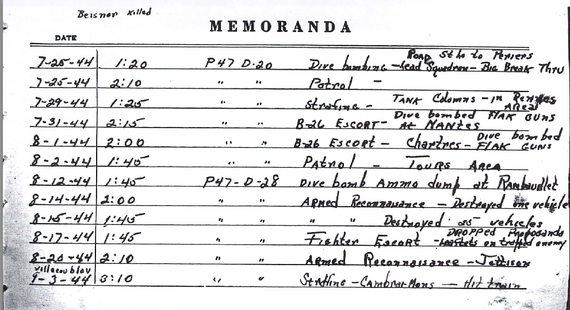 Beisner Killed
MEMORANDA
DATE
7-25-44 1:20 P47 D-20 Dive bombing - Road St Lo to Periers
Lead Squadron - Big Break Thru
7-25-44 2:10 " " Patrol -
7-29-44 1:25 " " Strafing - Tank Columns - in
Area
7-31-44 2:15 " " B-26 Escort - Dive bombed Flak Guns
at Nantes
8-1-44 2:00 " " B-26 Escort - Chartres - Dive bombed
Flak Guns
8-2-44 1:45 " " Patrol - Tours Area
8-12-44 1:45 P47-D-28 Dive bomb Ammo dump at Rambouillet
8-14-44 2:00 " " Armed Reconnaisance - Destroyed one vehicle
8-15-44 1:45 " " " " Destroyed vehicles
8-17-44 1:45 " " Fighter Escort - Dropped
on enemy
8-20-44 2:10 " " Armed Reconnaisance - Jettison
9-3-44 3:10 " " Strafing - Cambrai-Mons - Hit train